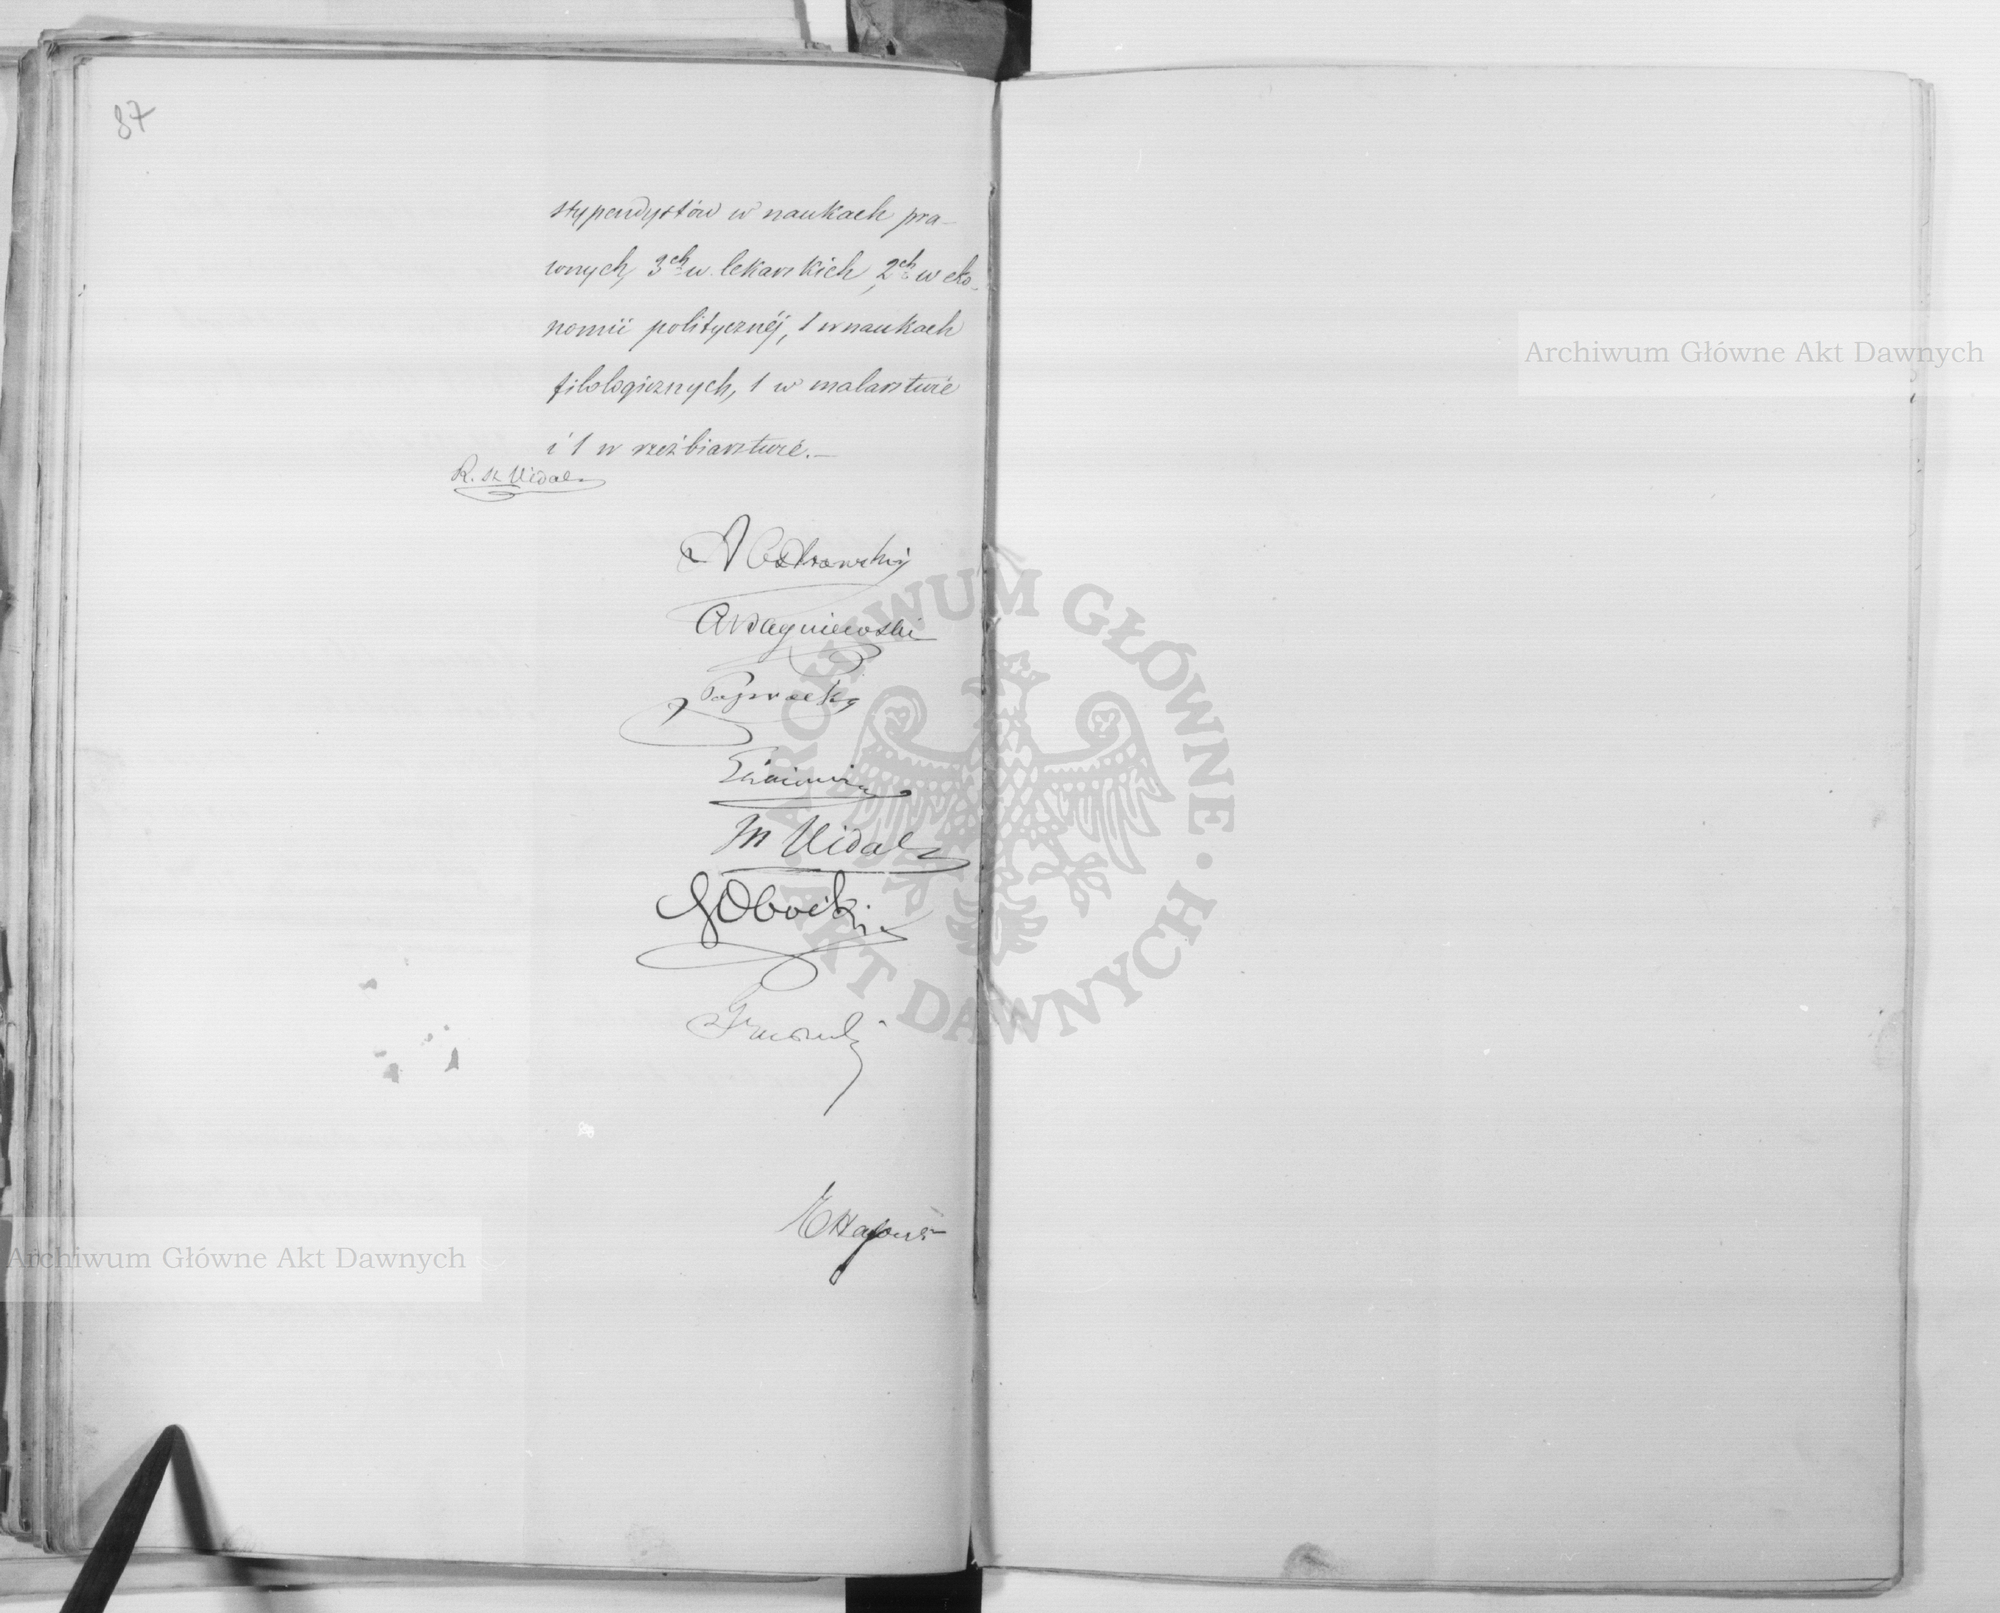 87
stypendystów w naukach pra-
wnych, 3ch w lekarskich, 2ch w eko-
nomii politycznéj, 1 w naukach
filologicznych, 1 w malarstwie
i 1 w rzeźbiarstwie.—
R. St. Vidal
A Ostrowski
A Wagniewski
Paprocki
M Vidal
Archiwum Główne Akt Dawnych
Archiwum Główne Akt Dawnych
ARCHIWUM GŁÓWNE · AKT DAWNYCH ·